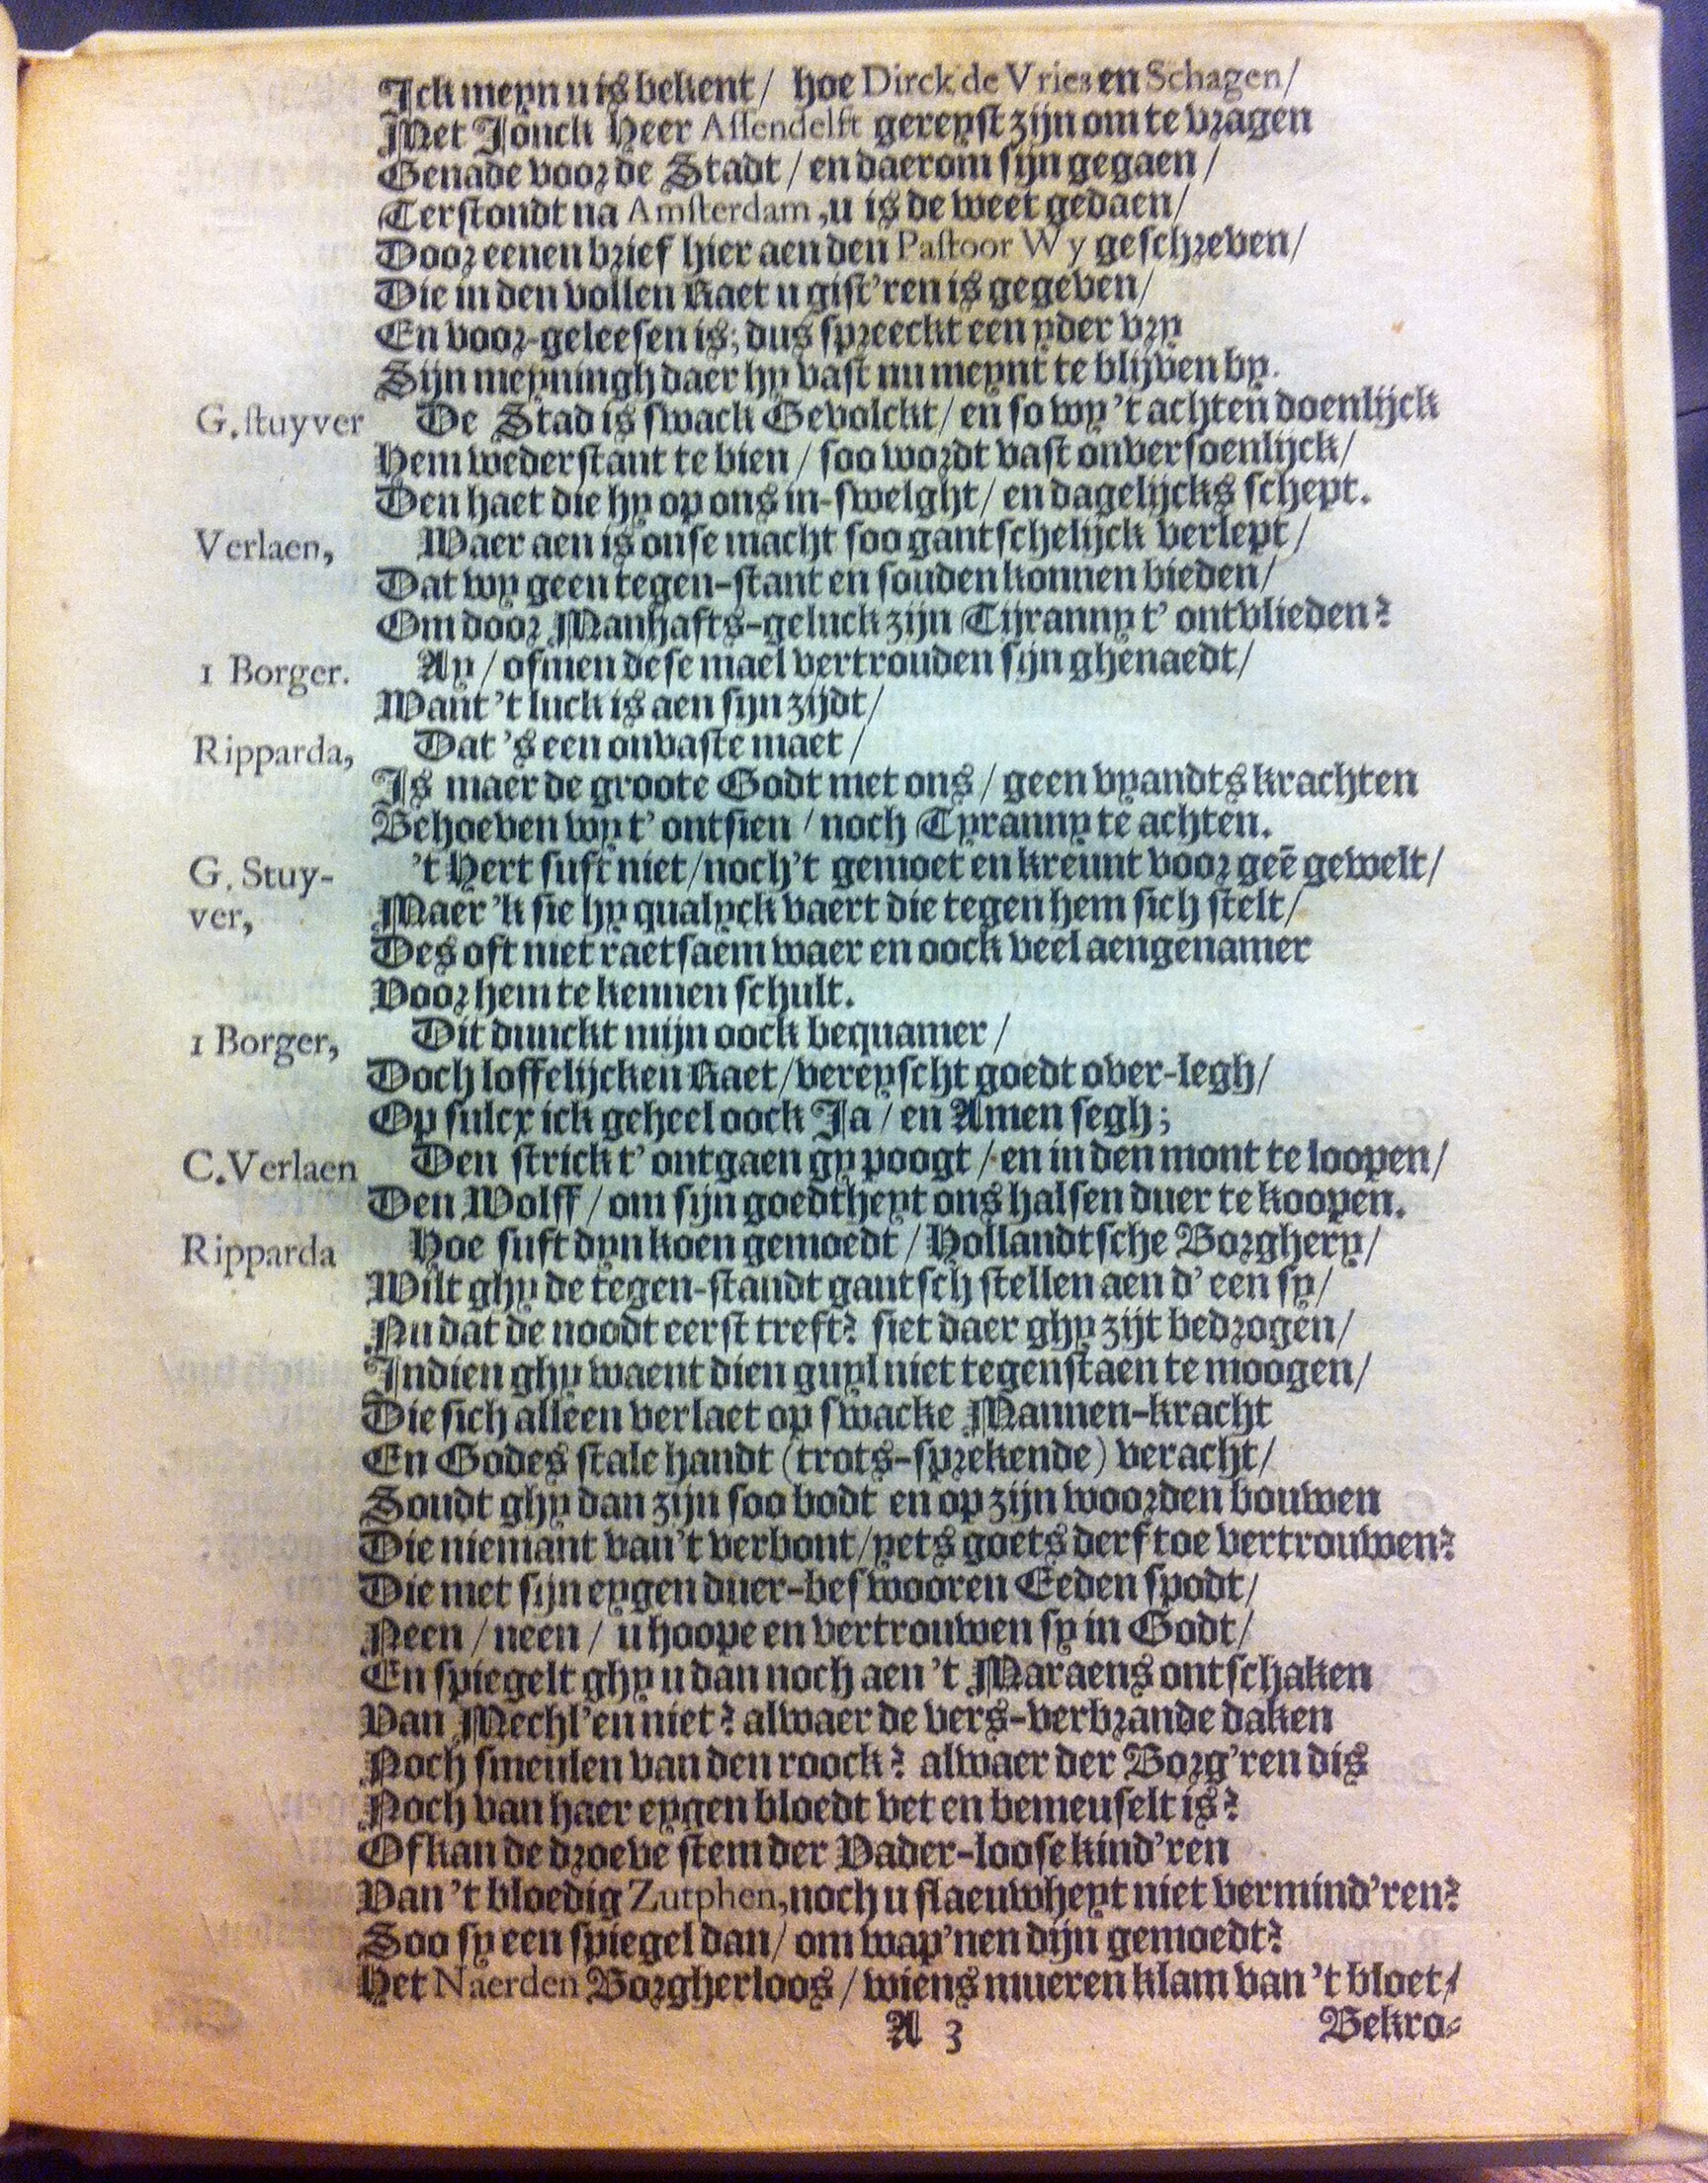 Ick meyn u is bekent/ hoe Dirck de Vries en Schagen/
Met Jonck Heer Assendelft gereyst zijn om te vragen
Genade voor de Stadt / en daerom sijn gegaen /
Terstondt na Amsterdam, u is de weet gedaen/
Door eenen brief hier aen den Pastoor Wy geschreven/
Die in den vollen Raet u gist'ren is gegeven/
En voor-geleesen is; dus spreeckt een yder vry
Sijn meyningh daer hy vast nu meynt te blijven by.
G. stuyver De Stad is swack Gevolckt/ en so wy 't achten doenlijck
Hem wederstant te bien / soo wordt vast onversoenlijck/
Den haet die hy op ons in-swelght/ en dagelijcks schept.
Verlaen, Waer aen is onse macht soo gantschelijck verlept/
Dat wy geen tegen-stant en souden konnen bieden/
Om door Manhafts-geluck zijn Tijranny t' ontvlieden?
1 Borger. Ay / ofmen dese mael vertrouden sijn ghenaedt/
Want 't luck is aen sijn zijdt/
Ripparda, Dat 's een onvaste maet /
Is maer de groote Godt met ons / geen vyandts krachten
Behoeven wy t' ontsien / noch Tyranny te achten.
G. Stuy-
ver, 't Hert suft niet/noch 't gemoet en kreunt voor geē gewelt/
Maer 'k sie hy qualyck vaert die tegen hem sich stelt/
Des oft niet raetsaem waer en oock veel aengenamer
Voor hem te kennen schult.
1 Borger, Dit dunckt mijn oock bequamer /
Doch loffelijcken Raet/vereyscht goedt over-legh/
Op sulcx ick geheel oock Ja / en Amen segh;
C. Verlaen Den strick t' ontgaen gy poogt / en in den mont te loopen/
Den Wolff / om sijn goedtheyt ons halsen duer te koopen.
Ripparda Hoe suft dyn koen gemoedt / Hollandtsche Borghery/
Wilt ghy de tegen-standt gantsch stellen aen d' een sy/
Nu dat de noodt eerst treft? siet daer ghy zijt bedrogen/
Indien ghy waent dien guyl niet tegenstaen te moogen/
Die sich alleen verlaet op swacke Mannen-kracht
En Godes stale handt (trots-sprekende) veracht/
Soudt ghy dan zijn soo bodt en op zijn woorden bouwen
Die niemant van't verbont/yets goets derf toe vertrouwen?
Die met sijn eygen duer-beswooren Eeden spodt/
Neen / neen / u hoope en vertrouwen sy in Godt/
En spiegelt ghy u dan noch aen 't Maraens ontschaken
Van Mechl'en niet? alwaer de vers-verbrande daken
Noch smeulen van den roock? alwaer der Borg'ren dis
Noch van haer eygen bloedt vet en bemeuselt is?
Of kan de droeve stem der Vader-loose kind'ren
Van 't bloedig Zutphen, noch u flaeuwheyt niet vermind'ren?
Soo sy een spiegel dan/ om wap'nen dijn gemoedt?
Het Naerden Borgherloos / wiens mueren klam van 't bloet/
A 3 Bekro-